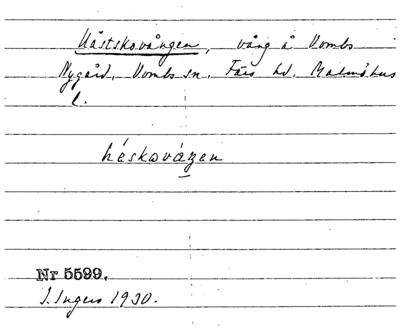 Håstskovången, vång å Vombs
Nygård, Vombs sn. Färs hd. Malmöhus
l.
héskovángen
Nr 5599.
I. Ingers 1930.